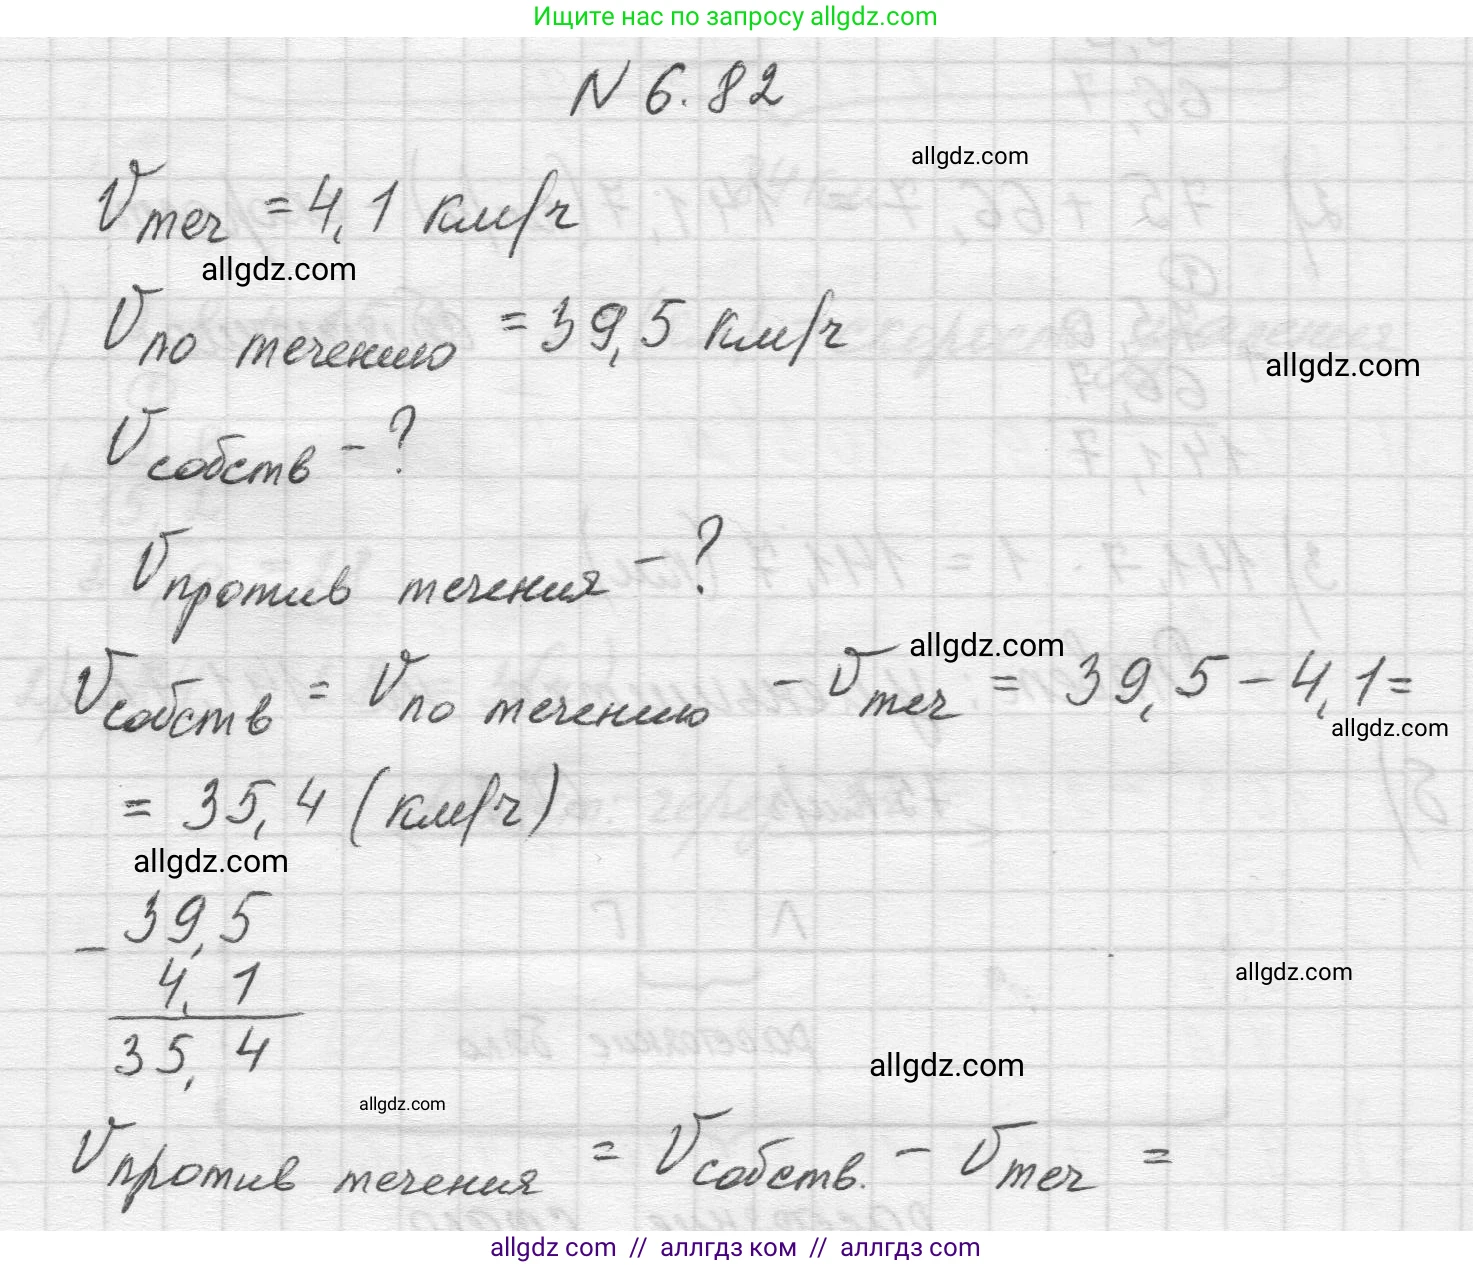 Ищите нас по запросу allgdz.com
N 6.82
allgdz.com
Vтеч = 4,1 км/ч
allgdz.com
Vпо течению = 39,5 км/ч
allgdz.com
Vсобств - ?
Vпротив течения - ?
allgdz.com
Vсобств = Vпо течению - Vтеч = 39,5 - 4,1 =
allgdz.com
= 35,4 (км/ч)
allgdz.com
- 39,5
4,1
allgdz.com
35,4
allgdz.com
allgdz.com
Vпротив течения = Vсобств. - Vтеч =
allgdz com // аллгдз ком // аллгдз com